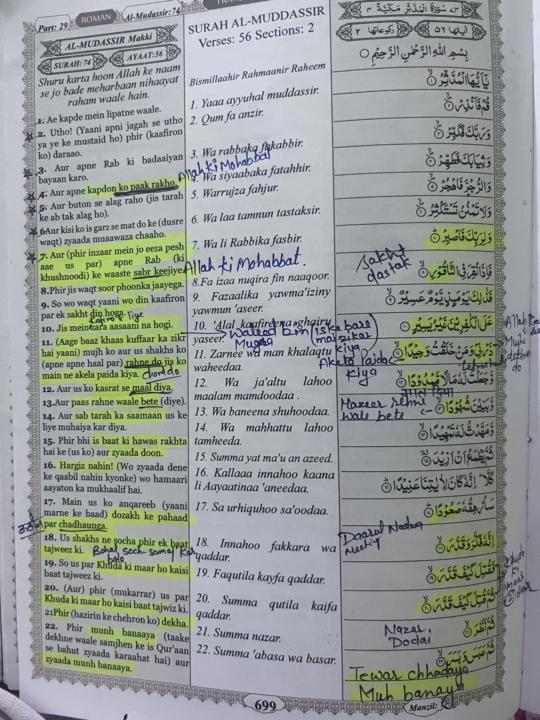 Part: 29
ROMAN
Al-Mudassir: 74
AL-MUDASSIR Makki
SURAH:74
AYAAT:56
Shuru karta hoon Allah ke naam
se jo bade meharbaan nihaayat
raham waale hain.
1. Ae kapde mein lipatne waale.
2. Utho! (Yaani apni jagah se utho
ya ye ke mustaid ho) phir (kaafiron
ko) daraao.
3. Aur apne Rab ki badaaiyan
bayaan karo.
4. Aur apne kapdon ko paak rakho.
5. Aur buton se alag raho (jis tarah
ke ab tak alag ho).
6Aur kisi ko is garz se mat do ke (dusre
waqt) zyaada muaawaza chaaho.
7. Aur (phir inzaar mein jo eeza pesh
aae us par) apne Rab (ki
khushnoodi) ke waaste sabr keejiye
8.Phir jis waqt soor phoonka jaayega.
9. So wo waqt yaani wo din kaafiron
par ek sakht din hoga.
10. Jis mein zara aasaani na hogi.
11. (Aage baaz khaas kuffaar ka zikr
hai yaani) mujh ko aur us shakhs ko
(apne apne haal par) rahne do jis ko
main ne akela paida kiya. chod do
12. Aur us ko kasrat se maal diya.
13.Aur paas rahne waale bete (diye).
14. Aur sab tarah ka saamaan us ke
liye muhaiya kar diya.
15. Phir bhi is baat ki hawas rakhta
hai ke (us ko) aur zyaada doon.
16. Hargiz nahin! (Wo zyaada dene
ke qaabil nahin kyonke) wo hamaari
aayaton ka mukhaalif hai.
17. Main us ko anqareeb (yaani
marne ke baad) dozakh ke pahaad
par chadhaunga.
18. Us shakhs ne socha phir ek baat
tajweez ki. Bohat soch samajh kar
bola
19. So us par Khuda ki maar ho kaisi
baat tajweez ki.
20. (Aur) phir (mukarrar) us par
Khuda ki maar ho kaisi baat tajwiz ki.
21Phir (hazirin ke chehron ko) dekha.
22. Phir munh banaaya (taake
dekhne waale samjhen ke is Qur'aan
se bahut zyaada karaahat hai) aur
zyaada munh banaaya.
SURAH AL-MUDDASSIR
Verses: 56 Sections: 2
Bismillaahir Rahmaanir Raheem
1. Yaaa ayyuhal muddassir.
2. Qum fa anzir.
3. Wa rabbaka fakabbir.
Allah ki Mohabbat
4. Wa siyaabaka fatahhir.
5. Warrujza fahjur.
6. Wa laa tamnun tastaksir.
7. Wa li Rabbika fasbir.
Allah ki Mohabbat.
8.Fa izaa nuqira fin naaqoor.
9. Fazaalika yawma'iziny
yawmun 'aseer.
10. 'Alal kaafireena ghairu
yaseer.
11. Zarnee wa man khalaqtu
waheedaa.
12. Wa ja'altu lahoo
maalam mamdoodaa .
13. Wa baneena shuhoodaa.
14. Wa mahhattu lahoo
tamheeda.
15. Summa yat ma'u an azeed.
16. Kallaaa innahoo kaana
li Aayaatinaa 'aneedaa.
17. Sa urhiquhoo sa'oodaa.
18. Innahoo fakkara wa
qaddar.
19. Faqutila kayfa qaddar.
20. Summa qutila kaifa
qaddar.
21. Summa nazar.
22. Summa 'abasa wa basar.
بِسْمِ اللهِ الرَّحْمٰنِ الرَّحِيْمِ
يٰۤاَيُّهَا الْمُدَّثِّرُ
قُمْ فَاَنْذِرْ
وَرَبَّكَ فَكَبِّرْ
وَثِيَابَكَ فَطَهِّرْ
وَالرُّجْزَ فَاهْجُرْ
وَلَا تَمْنُنْ تَسْتَكْثِرُ
وَلِرَبِّكَ فَاصْبِرْ
Sakht
dastak
فَاِذَا نُقِرَ فِي النَّاقُوْرِ
فَذٰلِكَ يَوْمَئِذٍ يَّوْمٌ عَسِيْرٌ
عَلَى الْكٰفِرِيْنَ غَيْرُ يَسِيْرٍ
ذَرْنِيْ وَمَنْ خَلَقْتُ وَحِيْدًا
وَّجَعَلْتُ لَهٗ مَالًا مَّمْدُوْدًا
وَّبَنِيْنَ شُهُوْدًا
وَّمَهَّدْتُّ لَهٗ تَمْهِيْدًا
ثُمَّ يَطْمَعُ اَنْ اَزِيْدَ
كَلَّا ؕ اِنَّهٗ كَانَ لِاٰيٰتِنَا عَنِيْدًا
سَاُرْهِقُهٗ صَعُوْدًا
Daarul Nadwa
Meeting
اِنَّهٗ فَكَّرَ وَقَدَّرَ
فَقُتِلَ كَيْفَ قَدَّرَ
ثُمَّ قُتِلَ كَيْفَ قَدَّرَ
ثُمَّ نَظَرَ
Nazar
Dodai
ثُمَّ عَبَسَ وَبَسَرَ
Tewar chhadaya
Muh banaya
699
Manzil: